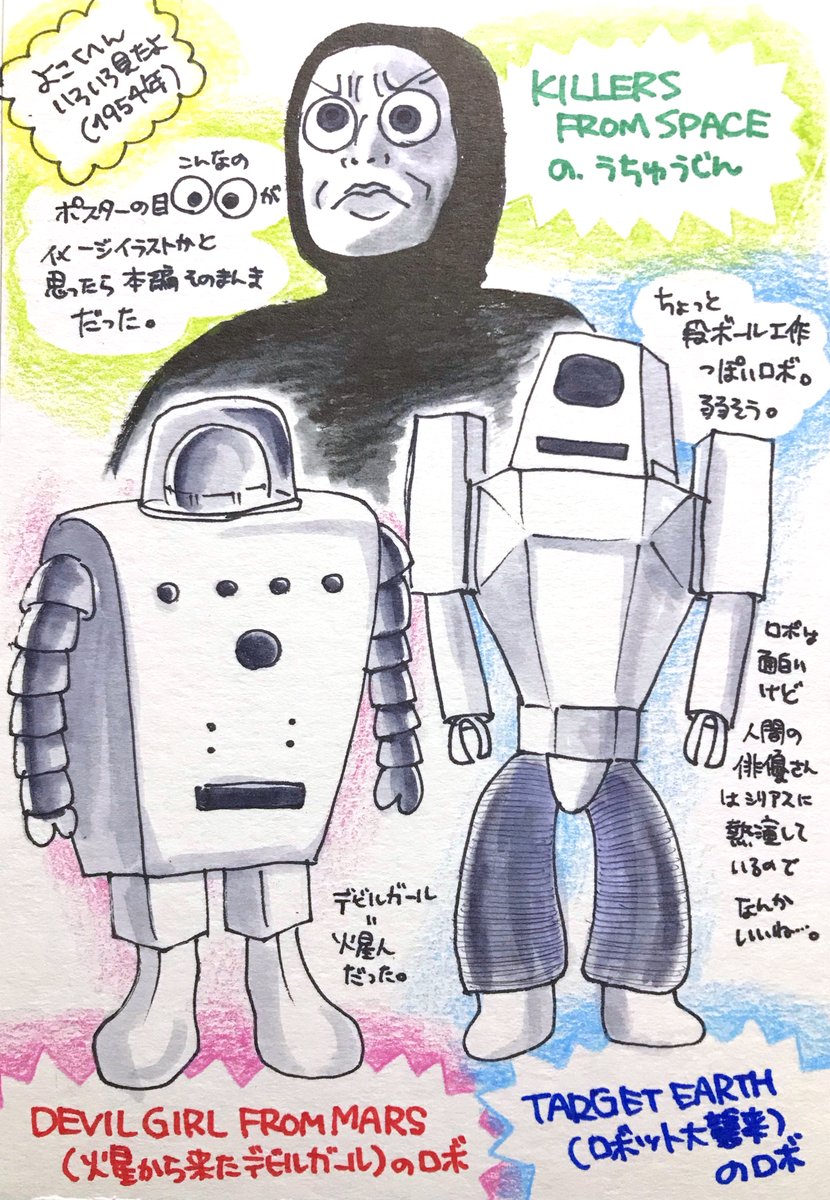 よこくへん
いろいろ見たよ
(1954年)
KILLERS
FROM SPACE
の、うちゅうじん
こんなの
ポスターの目が
イメージイラストかと
思ったら本編そのまんま
だった。
ちょっと
段ボール工作
っぽいロボ。
弱そう。
ロボは
面白い
けど
人間の
俳優さん
はシリアスに
熱演して
いるので
なんか
いいね…。
デビルガール
=
火星人
だった。
DEVIL GIRL FROM MARS
(火星から来たデビルガール)のロボ
TARGET EARTH
(ロボット大襲来)
のロボ